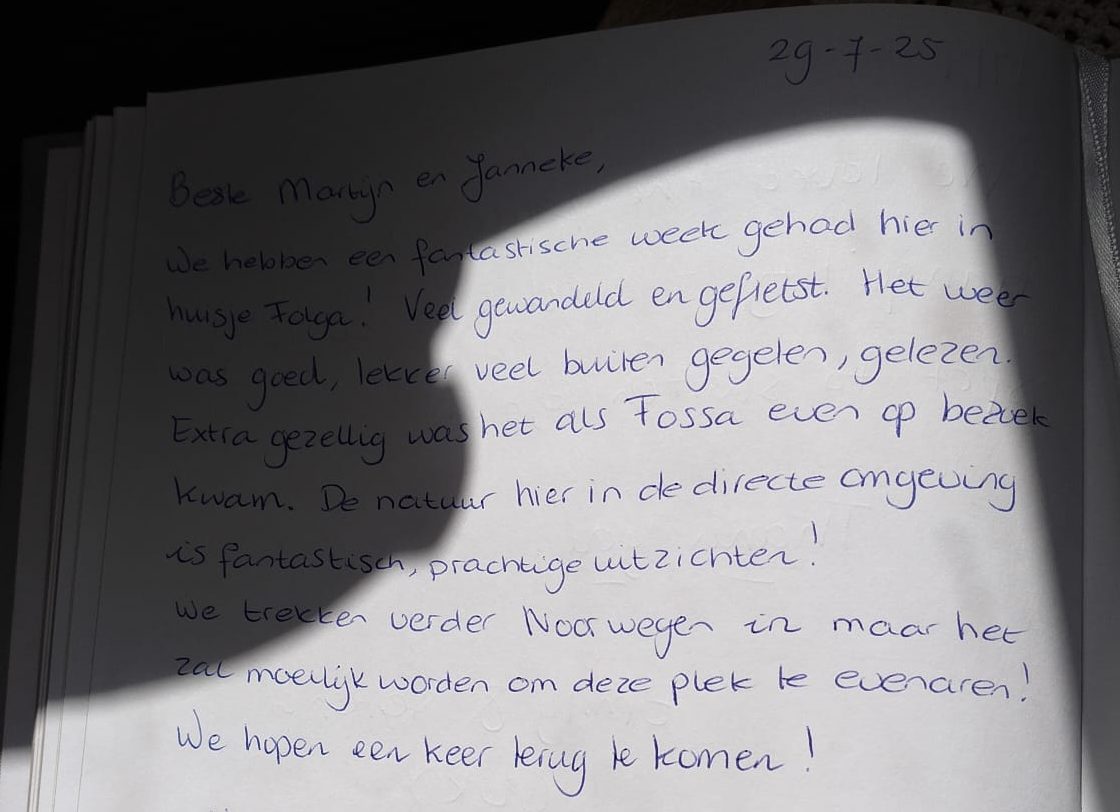 29-7-25
Beste Martijn en Janneke,
We hebben een fantastische week gehad hier in
huisje Folga! Veel gewandeld en gefietst. Het weer
was goed, lekker veel buiten gegeten, gelezen.
Extra gezellig was het als Fossa even op bezoek
kwam. De natuur hier in de directe omgeving
is fantastisch, prachtige uitzichten!
We trekken verder Noorwegen in maar het
zal moeilijk worden om deze plek te evenaren!
We hopen een keer terug te komen!